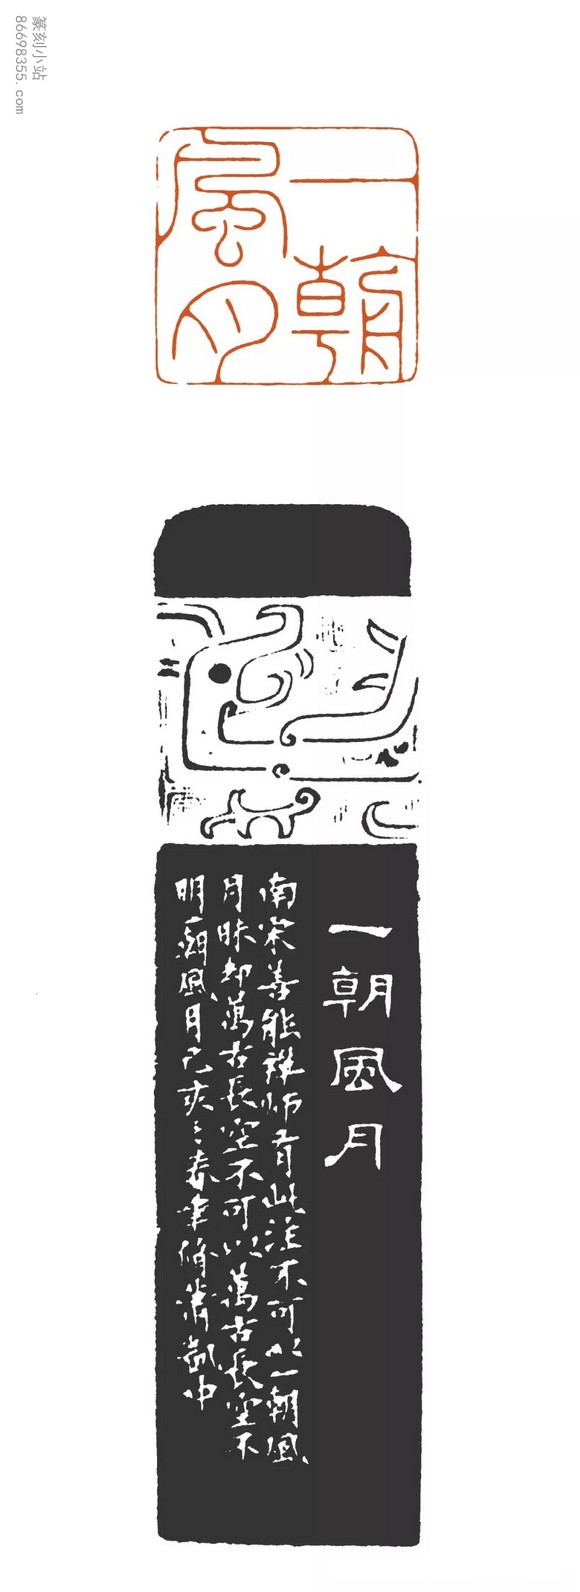 篆刻小站
86698355.com
一朝
風月
一朝風月
南宋善能禅师有此法不可以一朝風
月昧却萬古長空不可以萬古長空不
明一朝風月己亥之春聿脩蕭